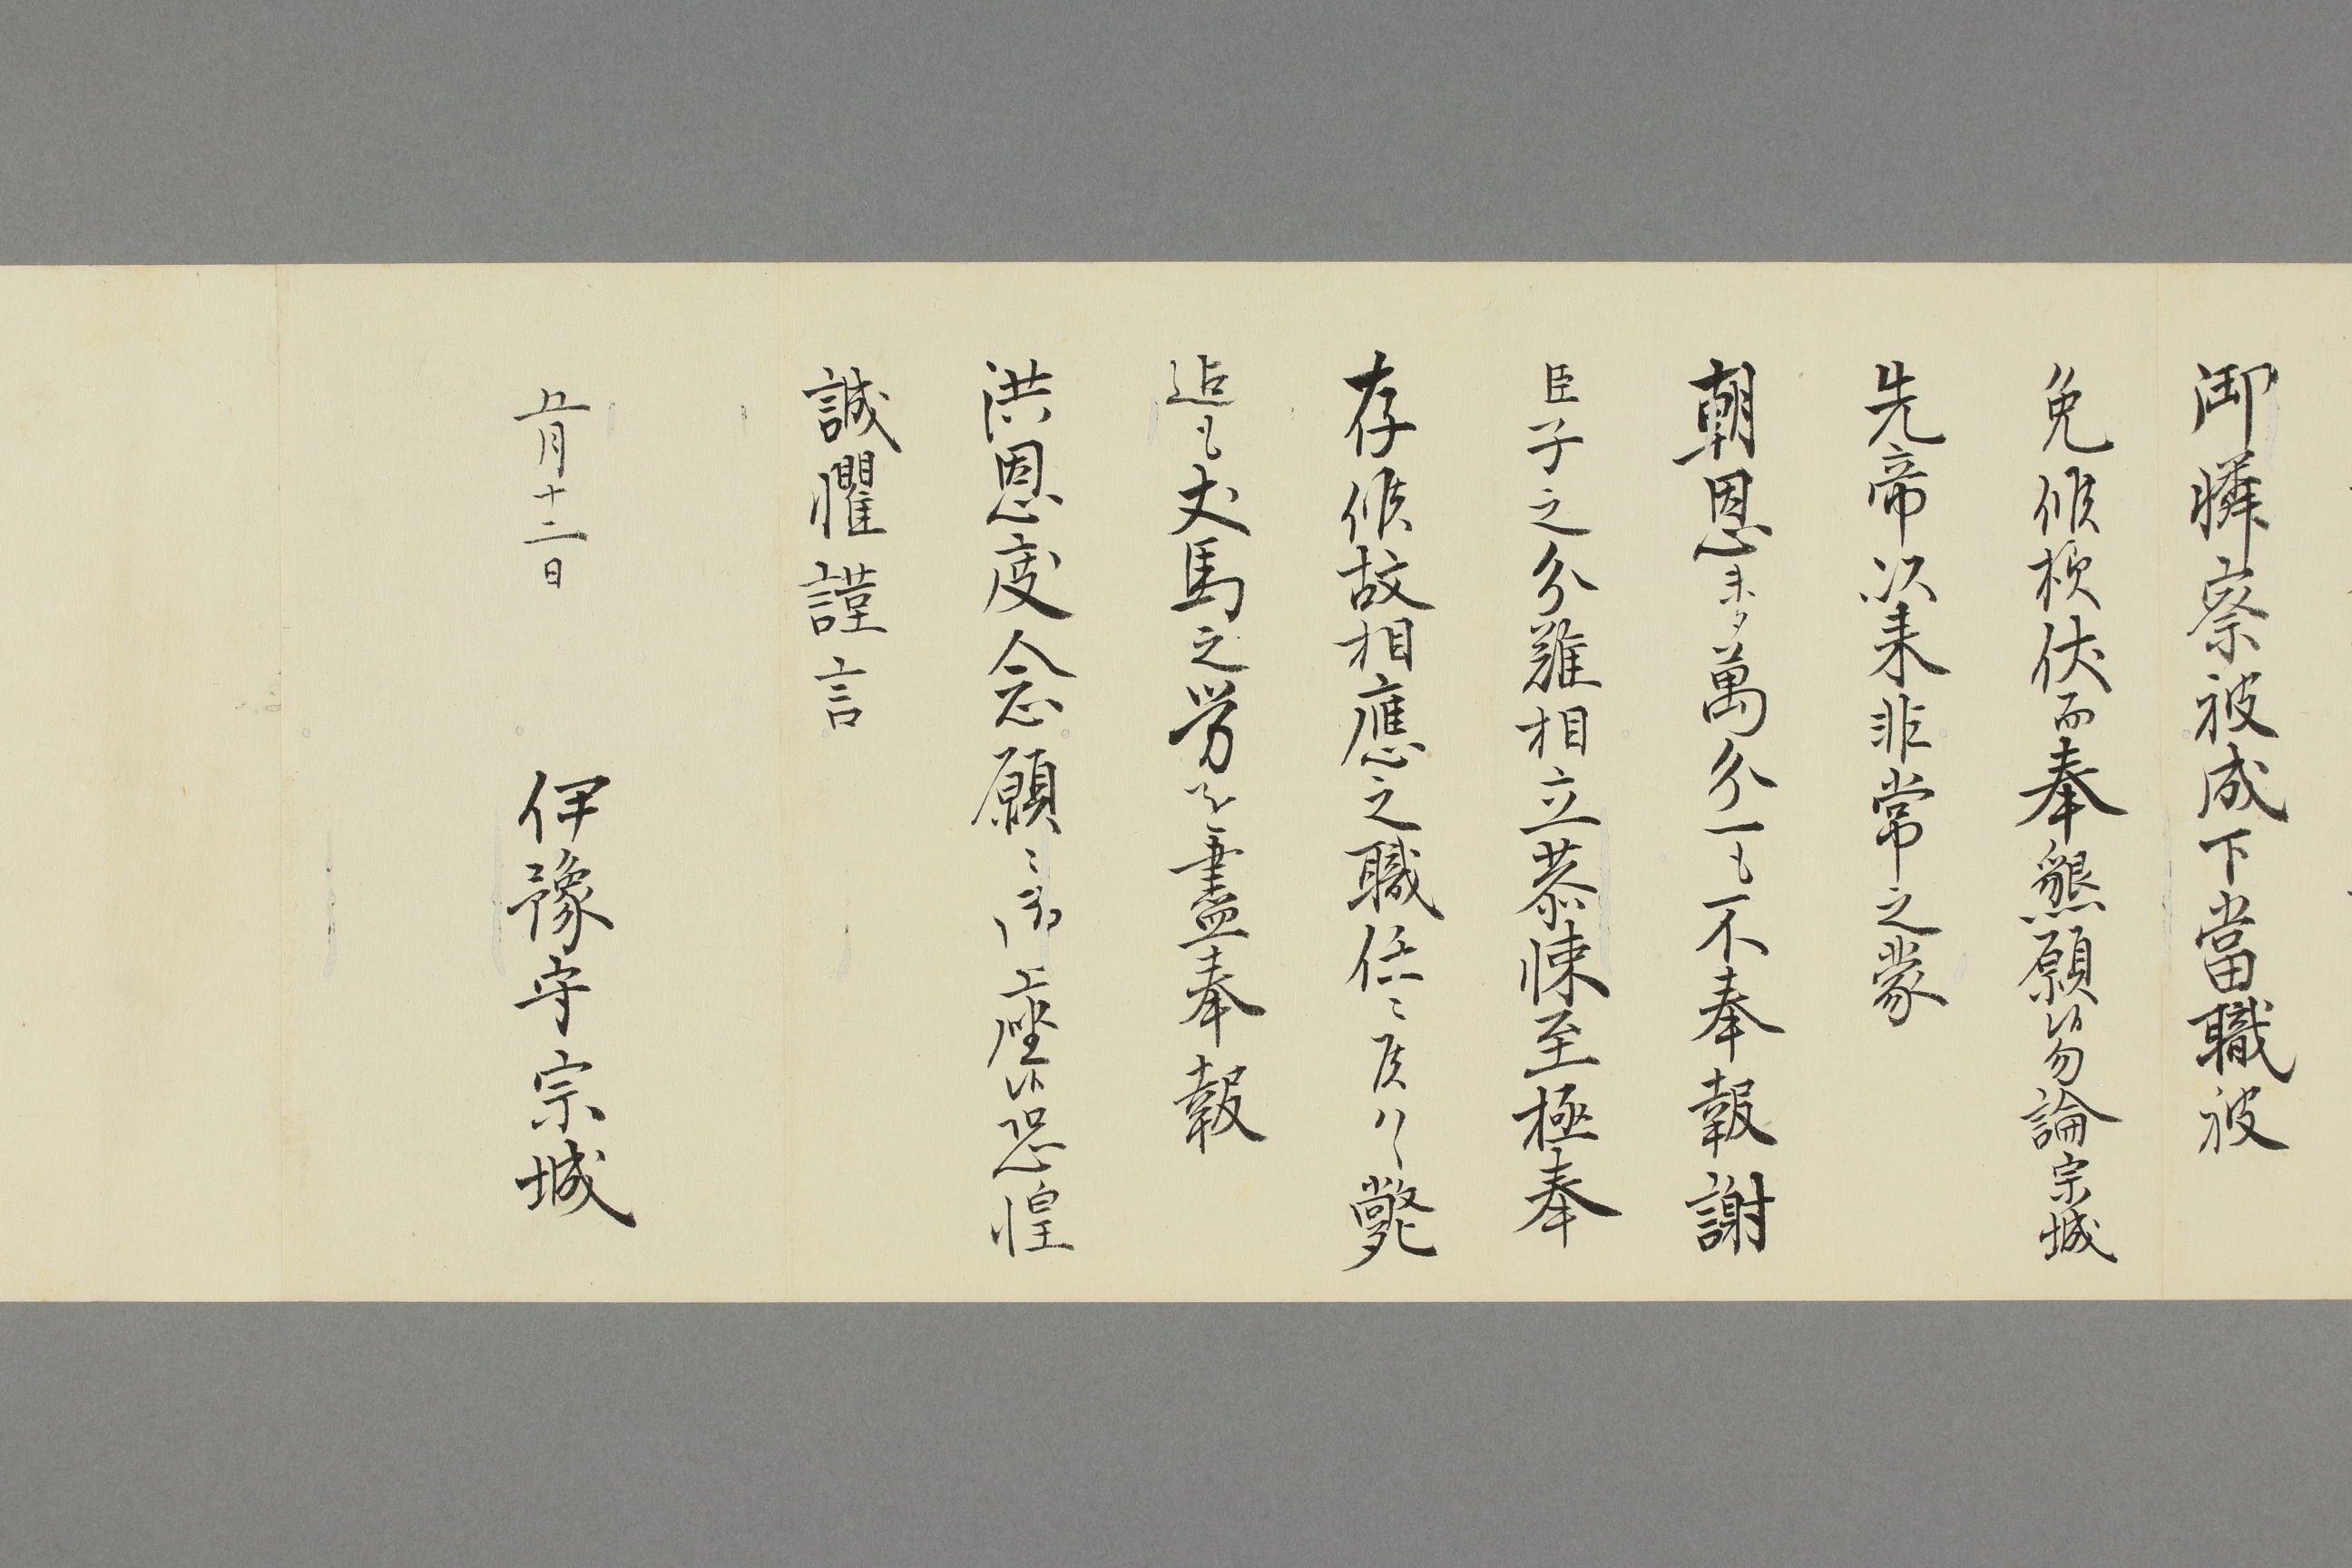 御憐察被成下當職被
免候様伏而奉懇願候勿論宗城
先帝以来非常之蒙
朝恩未タ萬分一も不奉報謝
臣子之分難相立恭悚至極奉
存候故相應之職任ニ候ハヽ斃
迄も犬馬之労を盡奉報
洪恩度念願ニ御座候恐惶
誠懼謹言
五月十二日
伊豫守宗城